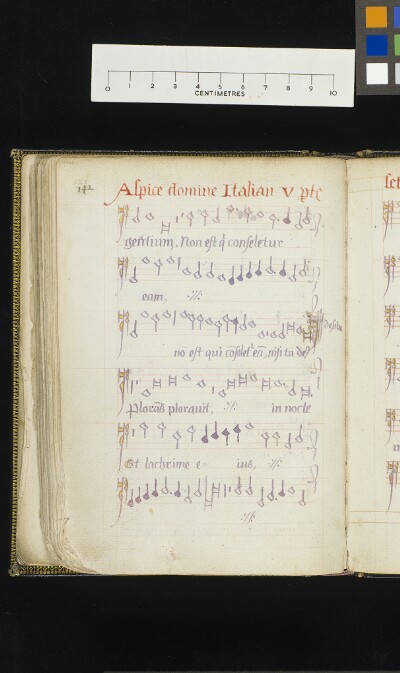 0 1 2 3 4 5 6 7 8 9 10
CENTIMETRES
142
Aspice domine Italian V pte
gentium, Non est q̄ consoletur
eam, :/:
nō est qui cōsolet' eā, nisi tu de9
Plorās plorauit, :/: in nocte
Et lachrime e ius, :/:
:/:
set